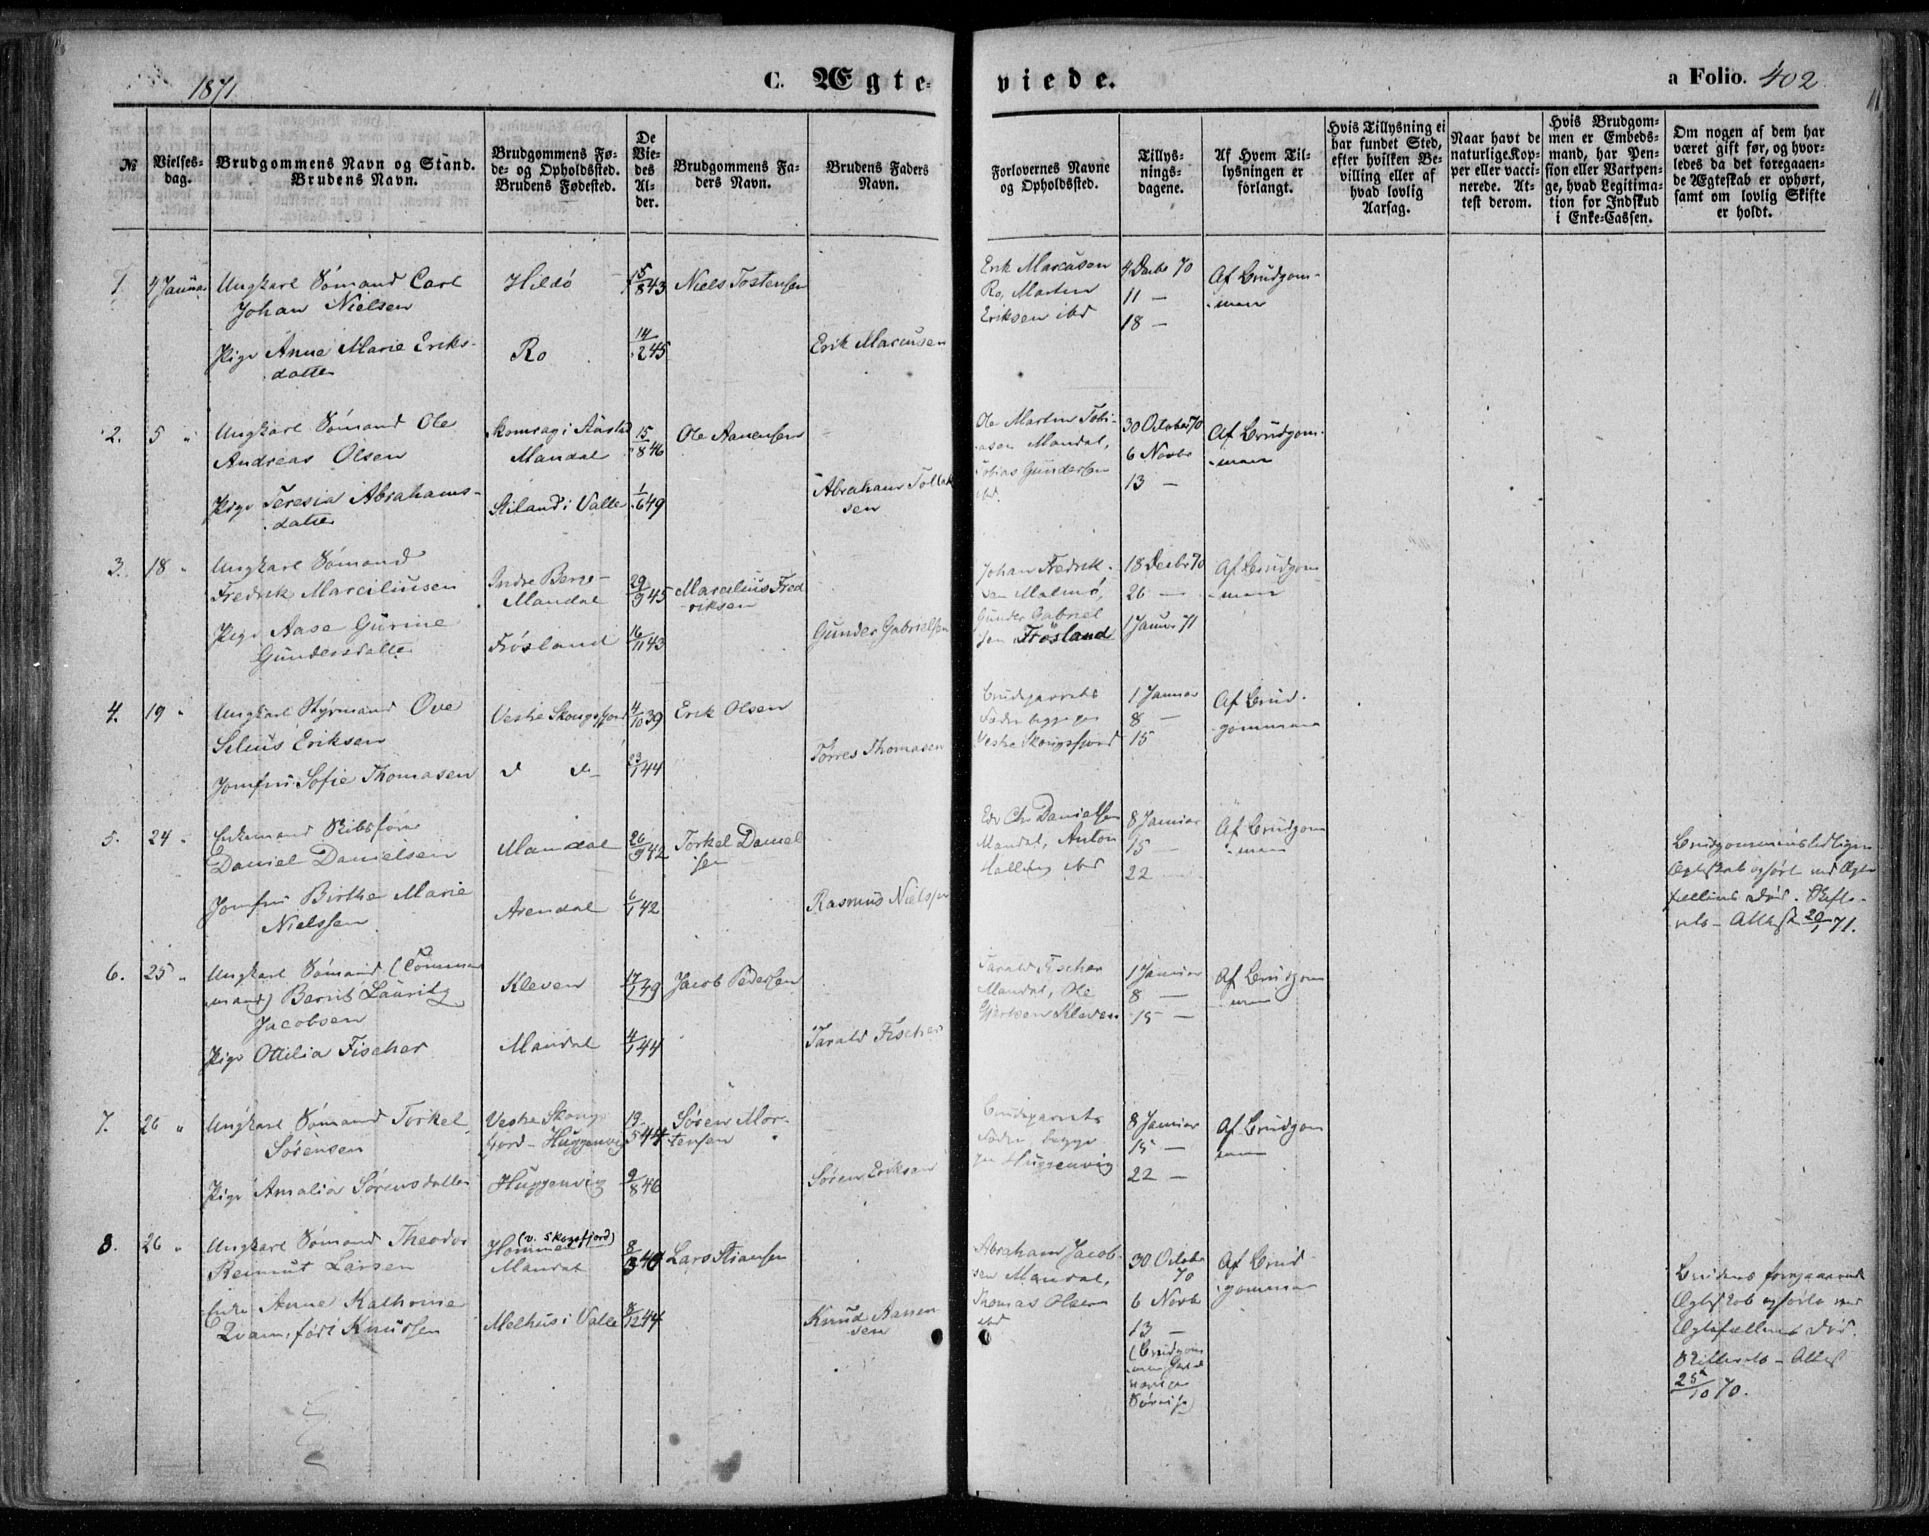 1871
C. Ægte-
viede.
a Folio. 402
№
Vielses-
dag.
Brudgommens Navn og Stand.
Brudens Navn.
Brudgommens Fø-
de- og Opholdssted.
Brudens Fødested.
De
Vie-
des
Al-
der.
Brudgommens Fa-
ders Navn.
Brudens Faders
Navn.
Forlovernes Navne
og Opholdssted.
Tillys-
nings-
dagene.
Af Hvem Til-
lysningen er
forlangt.
Hvis Tillysning ei
har fundet Sted,
efter hvilken Be-
villing eller af
hvad lovlig
Aarsag.
Naar havt de
naturlige Kop-
per eller vacci-
nerede. At-
test derom.
Hvis Brudgom-
men er Embeds-
mand, har Pen-
sion eller Vartpen-
ge, hvad Legitima-
tion for Indskud
i Enke-Cassen.
Om nogen af dem har
været gift før, og hvor-
ledes da det foregaaen-
de Ægteskab er ophørt,
samt om lovlig Skifte
er holdt.
1. 4 Januar
Ungkarl Sømand Carl
Johan Nielsen
Hildø
15/8 43
Niels Tostensen
Pige Anne Marie Eriks-
datter
Ro
14/2 45
Erik Marcusen
Erik Marcusen
Ro, Martin
Eriksen ibd
4 Decbr 70
11 —
18 —
Af Brudgom-
men
2. 5 "
Ungkarl Sømand Ole
Andreas Olsen
Mandal
15/8 46
Ole Aanensen
Pige Teresia Abrahams-
datter
Stiland i Valle
1/6 49
Abrahams Tollak
sen
Ole Martin Tobi-
asen Mandal,
Tobias Gundersen
ibd.
30 October 70
6 Novbr
13 —
Af Brudgom-
men
3. 18 "
Ungkarl Sømand
Fredrik Marciliusen
Indre Berge-
Mandal
29/9 45
Marcilius Fred
riksen
Pige Aase Gurine
Gundersdatter
Frøsland
16/11 43
Gunder Gabrielsen
Johan Fredrik-
sen Malmø,
Gunder Gabriel
sen Frøsland
18 Decbr 70
26 —
1 Januar 71
Af Brudgom-
men
4. 19 "
Ungkarl Styrmand Ove
Selius Eriksen
Vestre Skougsfjord
4/10 39
Erik Olsen
Jomfru Sofie Thomasen
d d—
23/1 44
Torres Thomasen
Brudeparrets
Fædre begge paa
Vestre Skougsfjord
1 Januar
8 —
15
Af Brud-
gommen
5. 24 "
Enkemand Skibsfører
Daniel Danielsen
Mandal
26/9 42
Torkel Daniel
sen
Jomfru Birthe Marie
Nielssen
Arendal
6/1 42
Rasmus Nielssen
Edv Chr Danielsen
Mandal, Anton
ibd
8 Januar
15 —
22 —
Af Brudgom
men
Brudgommens tidligere
Ægteskab ophørt ved Ægte
fællens Død. Skifte-
rets-Attest 20/1 71.
6. 25 "
Ungkarl Sømand (Tømmer
mand) Bernt Lauritz
Jacobsen
Kleven
17/1 49
Jacob Pedersen
Pige Ottilia Fischer
Mandal
4/1 44
Tarald Fischer
Tarald Fischer
Mandal, Ole
Gjertsen Kleven
1 Januar
8 —
15 —
Af Brudgom
men
7. 26 "
Ungkarl Sømand Torkel
Sørensen
Vestre Skougs
fjord-Huggenvig
19/5 44
Søren Mor-
tensen
Pige Amalia Sørensdatter
Huggenvig
9/8 46
Søren Eriksen
Brudeparrets
Fædre, begge
paa Huggenvig
8 Januar
15 —
22 —
Af Brudgom
men
8. 26 "
Ungkarl Sømand Theodor
Reinnut Larsen
(v. Skogsfjord)
Homme
Mandal
8/3 40
Lars Stiansen
Enke Anne Kathrine
Qvam, født Knudsen
Melhus i Valle
8/12 44
Knud Aanen
sen
Abraham Jacob-
sen Mandal,
Thomas Olsen
ibd
30 October
70
6 Novbr
13 —
(Brudgom
Af Brud-
gommen
Brudens foregaaende
Ægteskab ophørte ved
Ægtefællens Død.
Skifterets-Attest
25/10 70.